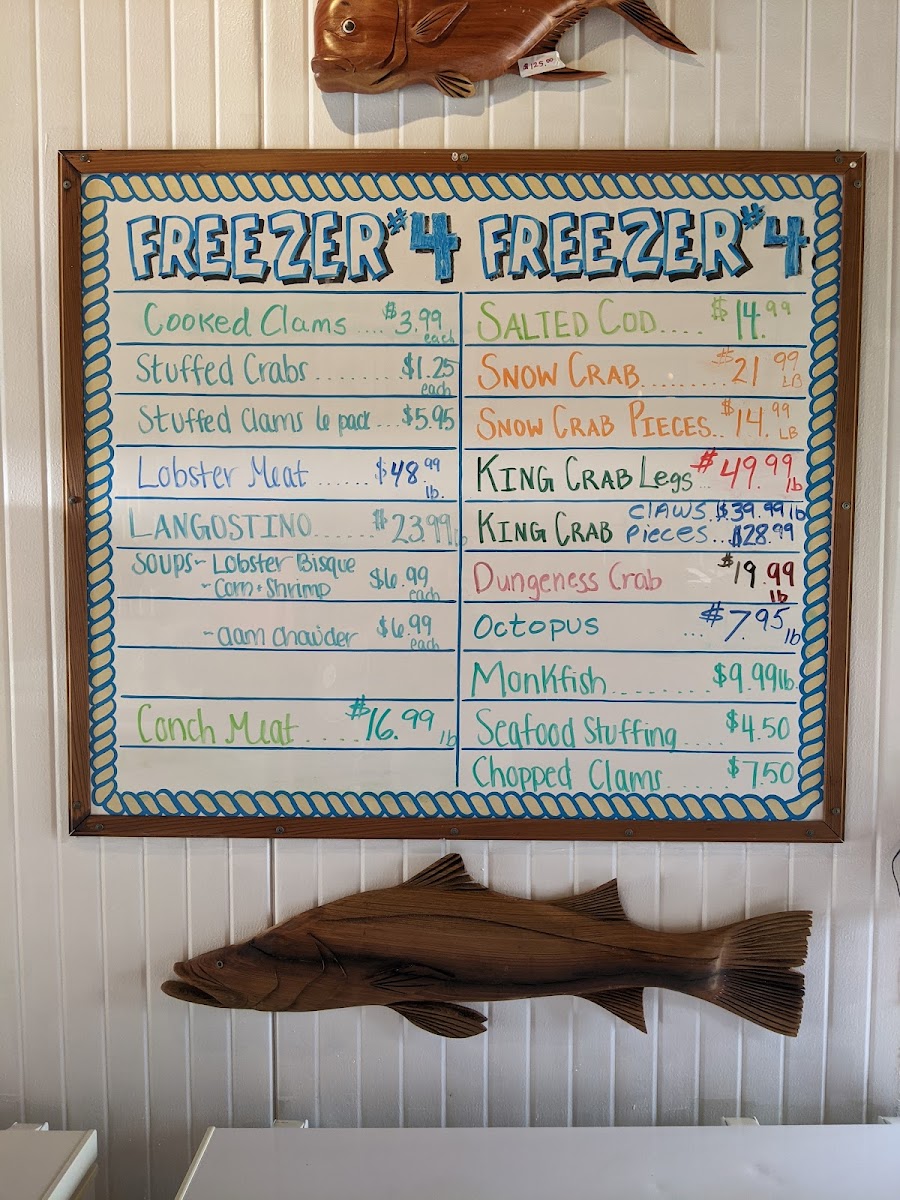 $125.00
FREEZER #4
Cooked Clams .... $3.99 each
Stuffed Crabs ....... $1.25 each
Stuffed Clams 6 pack ... $5.95
Lobster Meat ...... $48.99 lb.
LANGOSTINO ....... $23.99 lb
SOUPS~ Lobster Bisque
~ Corn + Shrimp $6.99 each
~ Clam Chowder $6.99 each
Conch Meat ..... $16.99 lb
FREEZER #4
SALTED COD..... $14.99
SNOW CRAB......... $21.99 LB
SNOW CRAB PIECES.. $14.99 LB
KING CRAB Legs ... $49.99 lb
KING CRAB CLAWS. $39.99 lb
Pieces... $28.99
Dungeness Crab $19.99 lb
Octopus ... $7.95 lb
Monkfish........ $9.99 lb.
Seafood Stuffing .... $4.50
Chopped Clams ...... $7.50